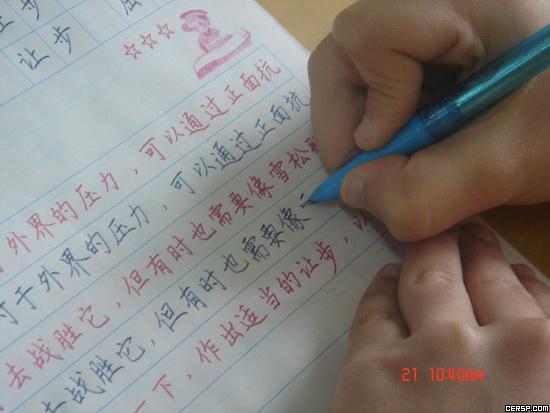 压步
让步
外界的压力，可以通过正面抗
对于外界的压力，可以通过正面抗
去战胜它，但有时也需要像雪松
去战胜它，但有时也需要像
一下，作出适当的让步，以
21 10:40AM
CERSP.COM